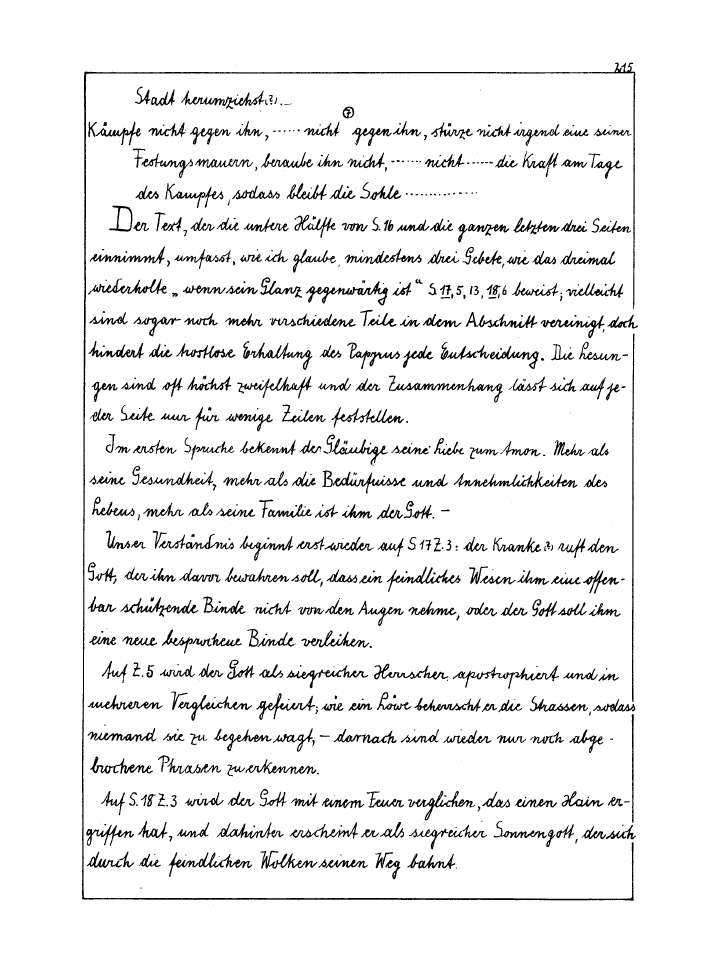 215
Stadt herumziehst(?).—
Kämpfe nicht gegen ihn, ······ nicht (?) gegen ihn, stürze nicht irgend eine seiner
Festungsmauern, beraube ihn nicht, ······· nicht ······ die Kraft am Tage
des Kampfes, sodass bleibt die Sohle ··············
Der Text, der die untere Hälfte von S.16 und die ganzen letzten drei Seiten
einnimmt, umfasst, wie ich glaube, mindestens drei Gebete, wie das dreimal
wiederholte „wenn sein Glanz gegenwärtig ist“ S 17,5,13,18,6 beweist; vielleicht
sind sogar noch mehr verschiedene Teile in dem Abschnitt vereinigt, doch
hindert die trostlose Erhaltung des Papyrus jede Entscheidung. Die Lesun-
gen sind oft höchst zweifelhaft und der Zusammenhang lässt sich auf je-
der Seite nur für wenige Zeilen feststellen.
Im ersten Spruche bekennt der Gläubige seine Liebe zum Amon. Mehr als
seine Gesundheit, mehr als die Bedürfnisse und Annehmlichkeiten des
Lebens, mehr als seine Familie ist ihm der Gott. —
Unser Verständnis beginnt erst wieder auf S 17 Z.3: der Kranke(?) ruft den
Gott, der ihn davor bewahren soll, dass ein feindliches Wesen ihm eine offen-
bar schützende Binde nicht von den Augen nehme, oder der Gott soll ihm
eine neue besprochene Binde verleihen.
Auf Z.5 wird der Gott als siegreicher Herrscher apostrophiert und in
mehreren Vergleichen gefeiert; wie ein Löwe beherrscht er die Strassen, sodass
niemand sie zu begehen wagt, — darnach sind wieder nur noch abge-
brochene Phrasen zu erkennen.
Auf S.18 Z.3 wird der Gott mit einem Feuer verglichen, das einen Hain er-
griffen hat, und dahinter erscheint er als siegreicher Sonnengott, der sich
durch die feindlichen Wolken seinen Weg bahnt.